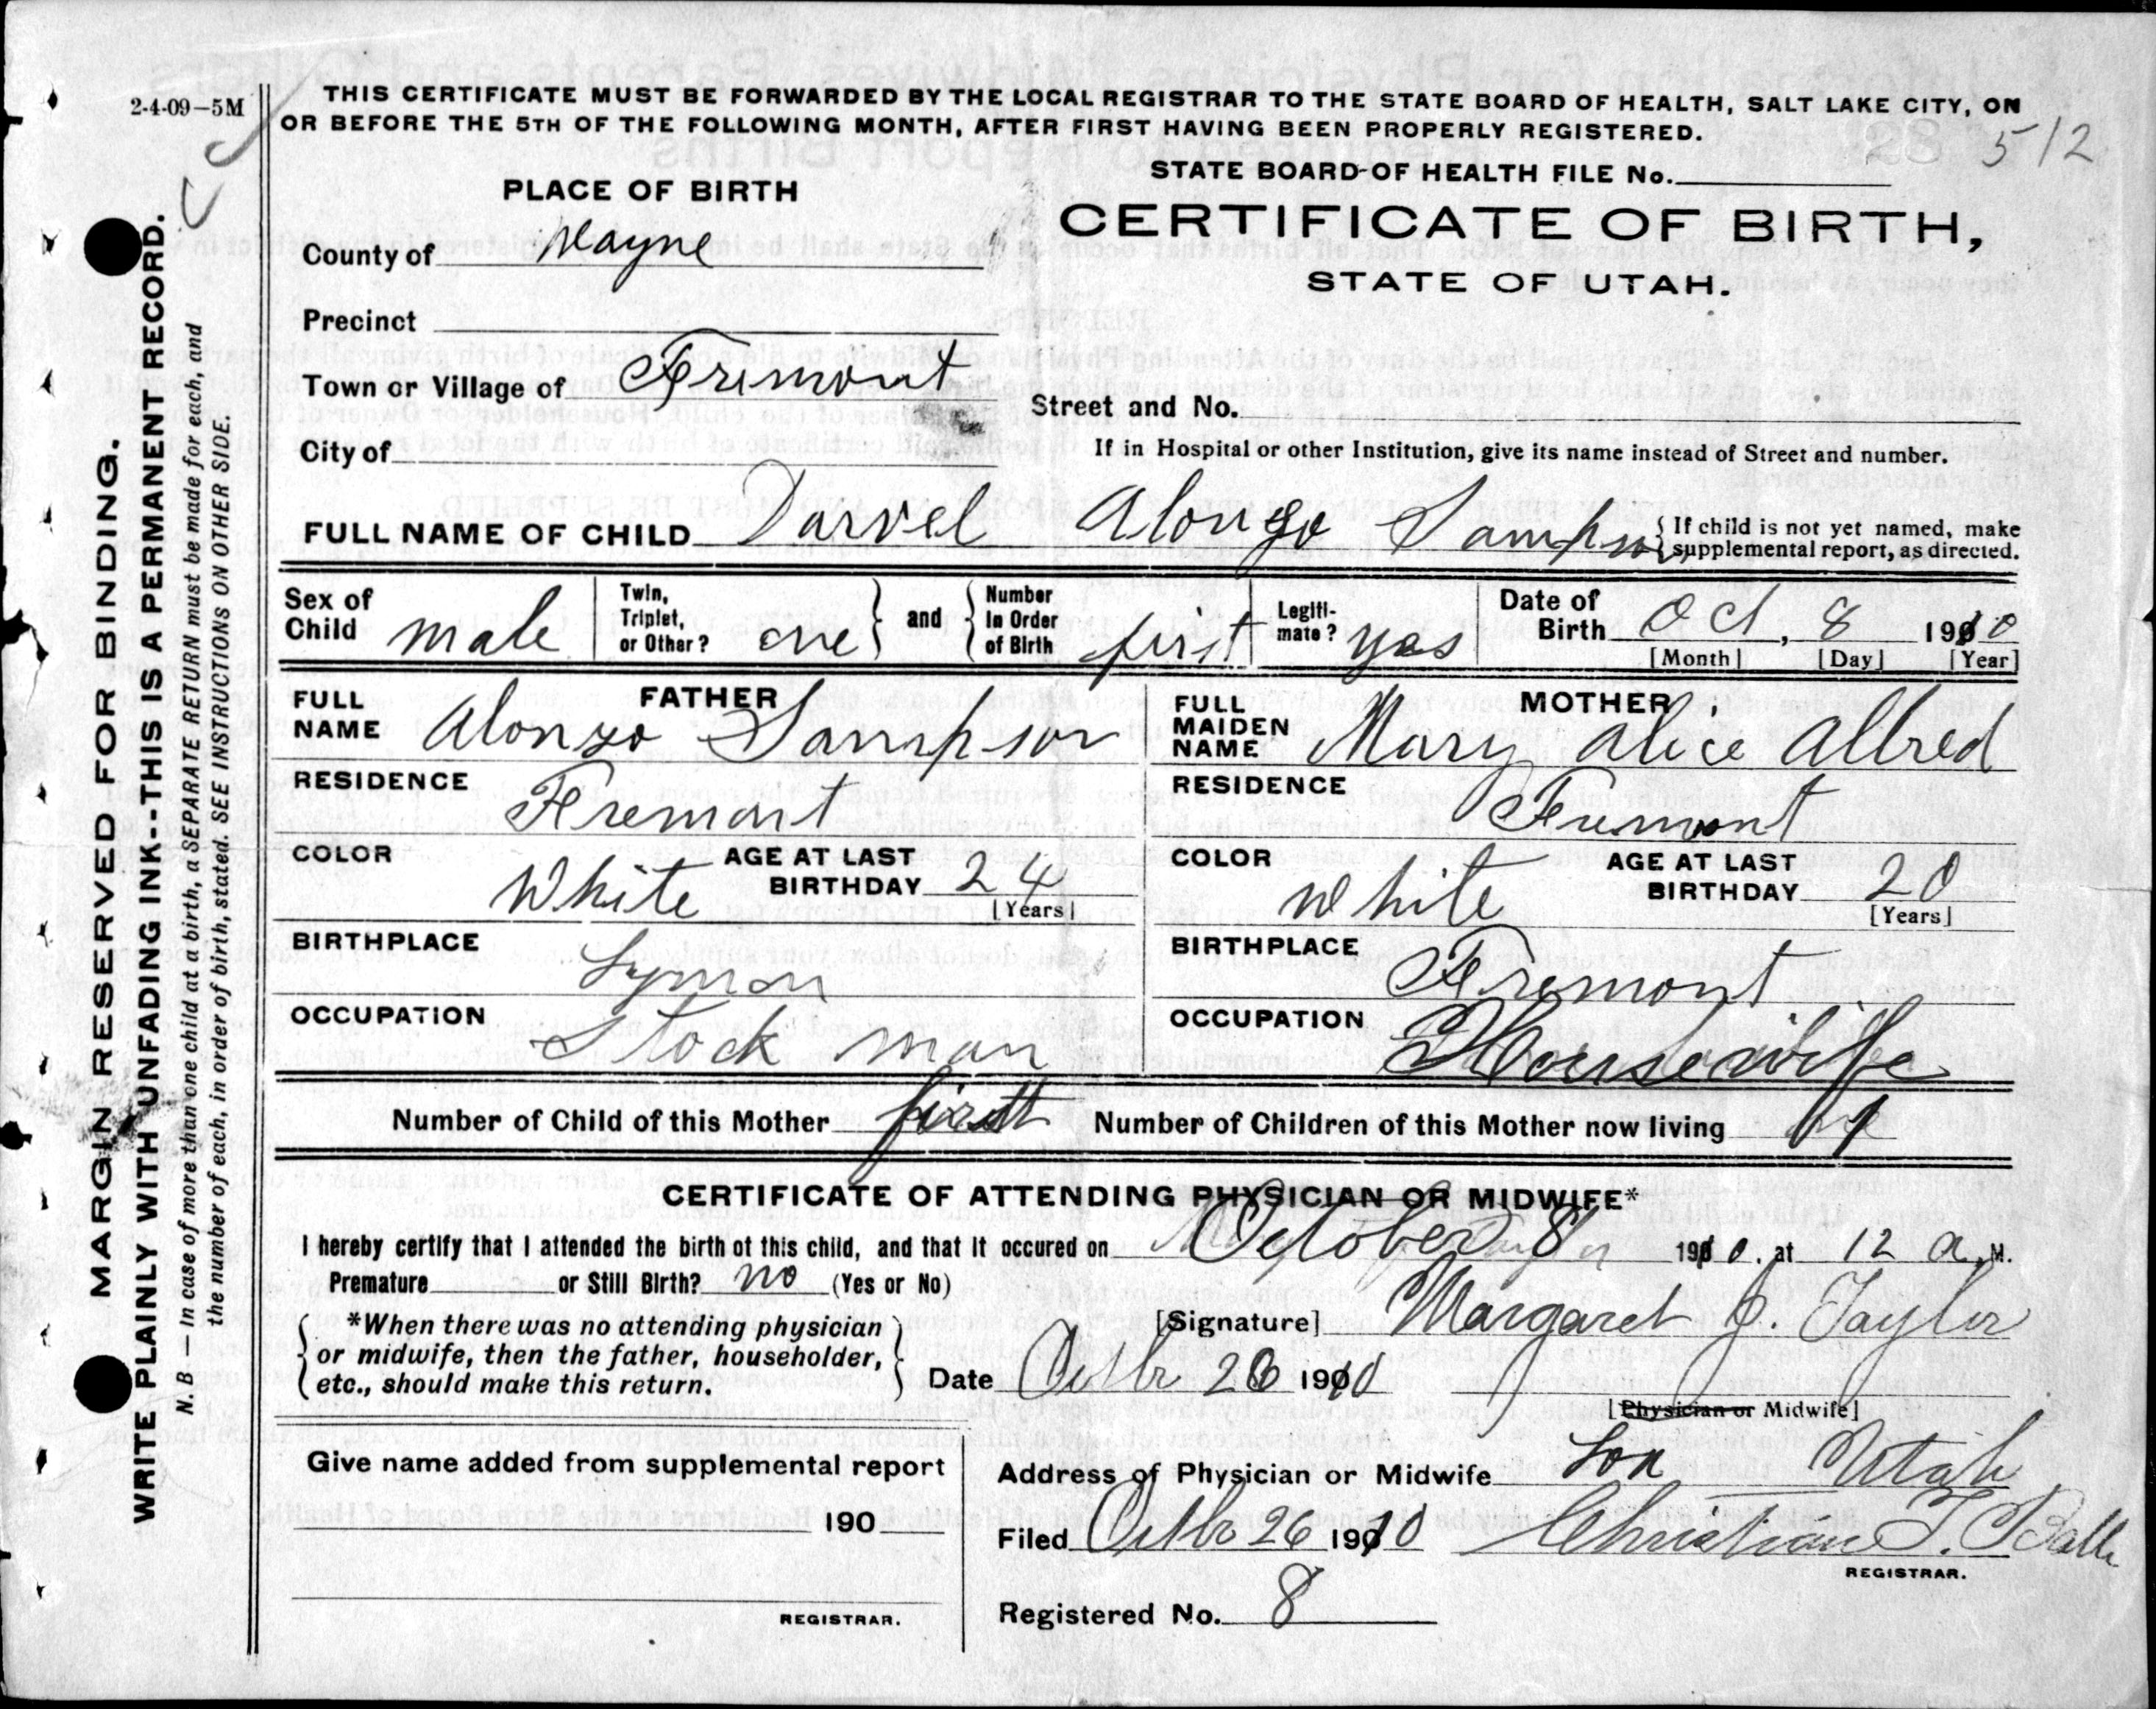 2-4-09—5M
THIS CERTIFICATE MUST BE FORWARDED BY THE LOCAL REGISTRAR TO THE STATE BOARD OF HEALTH, SALT LAKE CITY, ON
OR BEFORE THE 5TH OF THE FOLLOWING MONTH, AFTER FIRST HAVING BEEN PROPERLY REGISTERED.
28 512
STATE BOARD OF HEALTH FILE No.
PLACE OF BIRTH
CERTIFICATE OF BIRTH,
STATE OF UTAH.
County of Wayne
Precinct
Town or Village of Fremont
Street and No.
City of
If in Hospital or other Institution, give its name instead of Street and number.
FULL NAME OF CHILD Darvel Alonzo Sampson
{If child is not yet named, make
supplemental report, as directed.
Sex of Child male
Twin, Triplet, or Other? one } and { Number In Order of Birth first
Legiti-mate? yes
Date of Birth Oct, 8 1910
[Month] [Day] [Year]
FATHER
FULL NAME Alonzo Sampson
RESIDENCE Fremont
COLOR White AGE AT LAST BIRTHDAY 24
[Years]
BIRTHPLACE Lyman
OCCUPATION Stock man
MOTHER
FULL MAIDEN NAME Mary Alice Allred
RESIDENCE Fremont
COLOR White AGE AT LAST BIRTHDAY 20
[Years]
BIRTHPLACE Fremont
OCCUPATION Housewife
Number of Child of this Mother first Number of Children of this Mother now living 1
CERTIFICATE OF ATTENDING PHYSICIAN OR MIDWIFE*
I hereby certify that I attended the birth of this child, and that it occured on October 8 1910. at 12 a.M.
Premature or Still Birth? no (Yes or No)
*When there was no attending physician
or midwife, then the father, householder,
etc., should make this return.
[Signature] Margaret J. Taylor
Date Octbr 26 1910
[Physician or Midwife]
Give name added from supplemental report
190
REGISTRAR.
Address of Physician or Midwife Loa Utah
Filed Octbr 26 1910 Christian F. Balle
REGISTRAR.
Registered No. 8
MARGIN RESERVED FOR BINDING.
WRITE PLAINLY WITH UNFADING INK--THIS IS A PERMANENT RECORD.
N. B — In case of more than one child at a birth, a SEPARATE RETURN must be made for each, and
the number of each, in order of birth, stated. SEE INSTRUCTIONS ON OTHER SIDE.